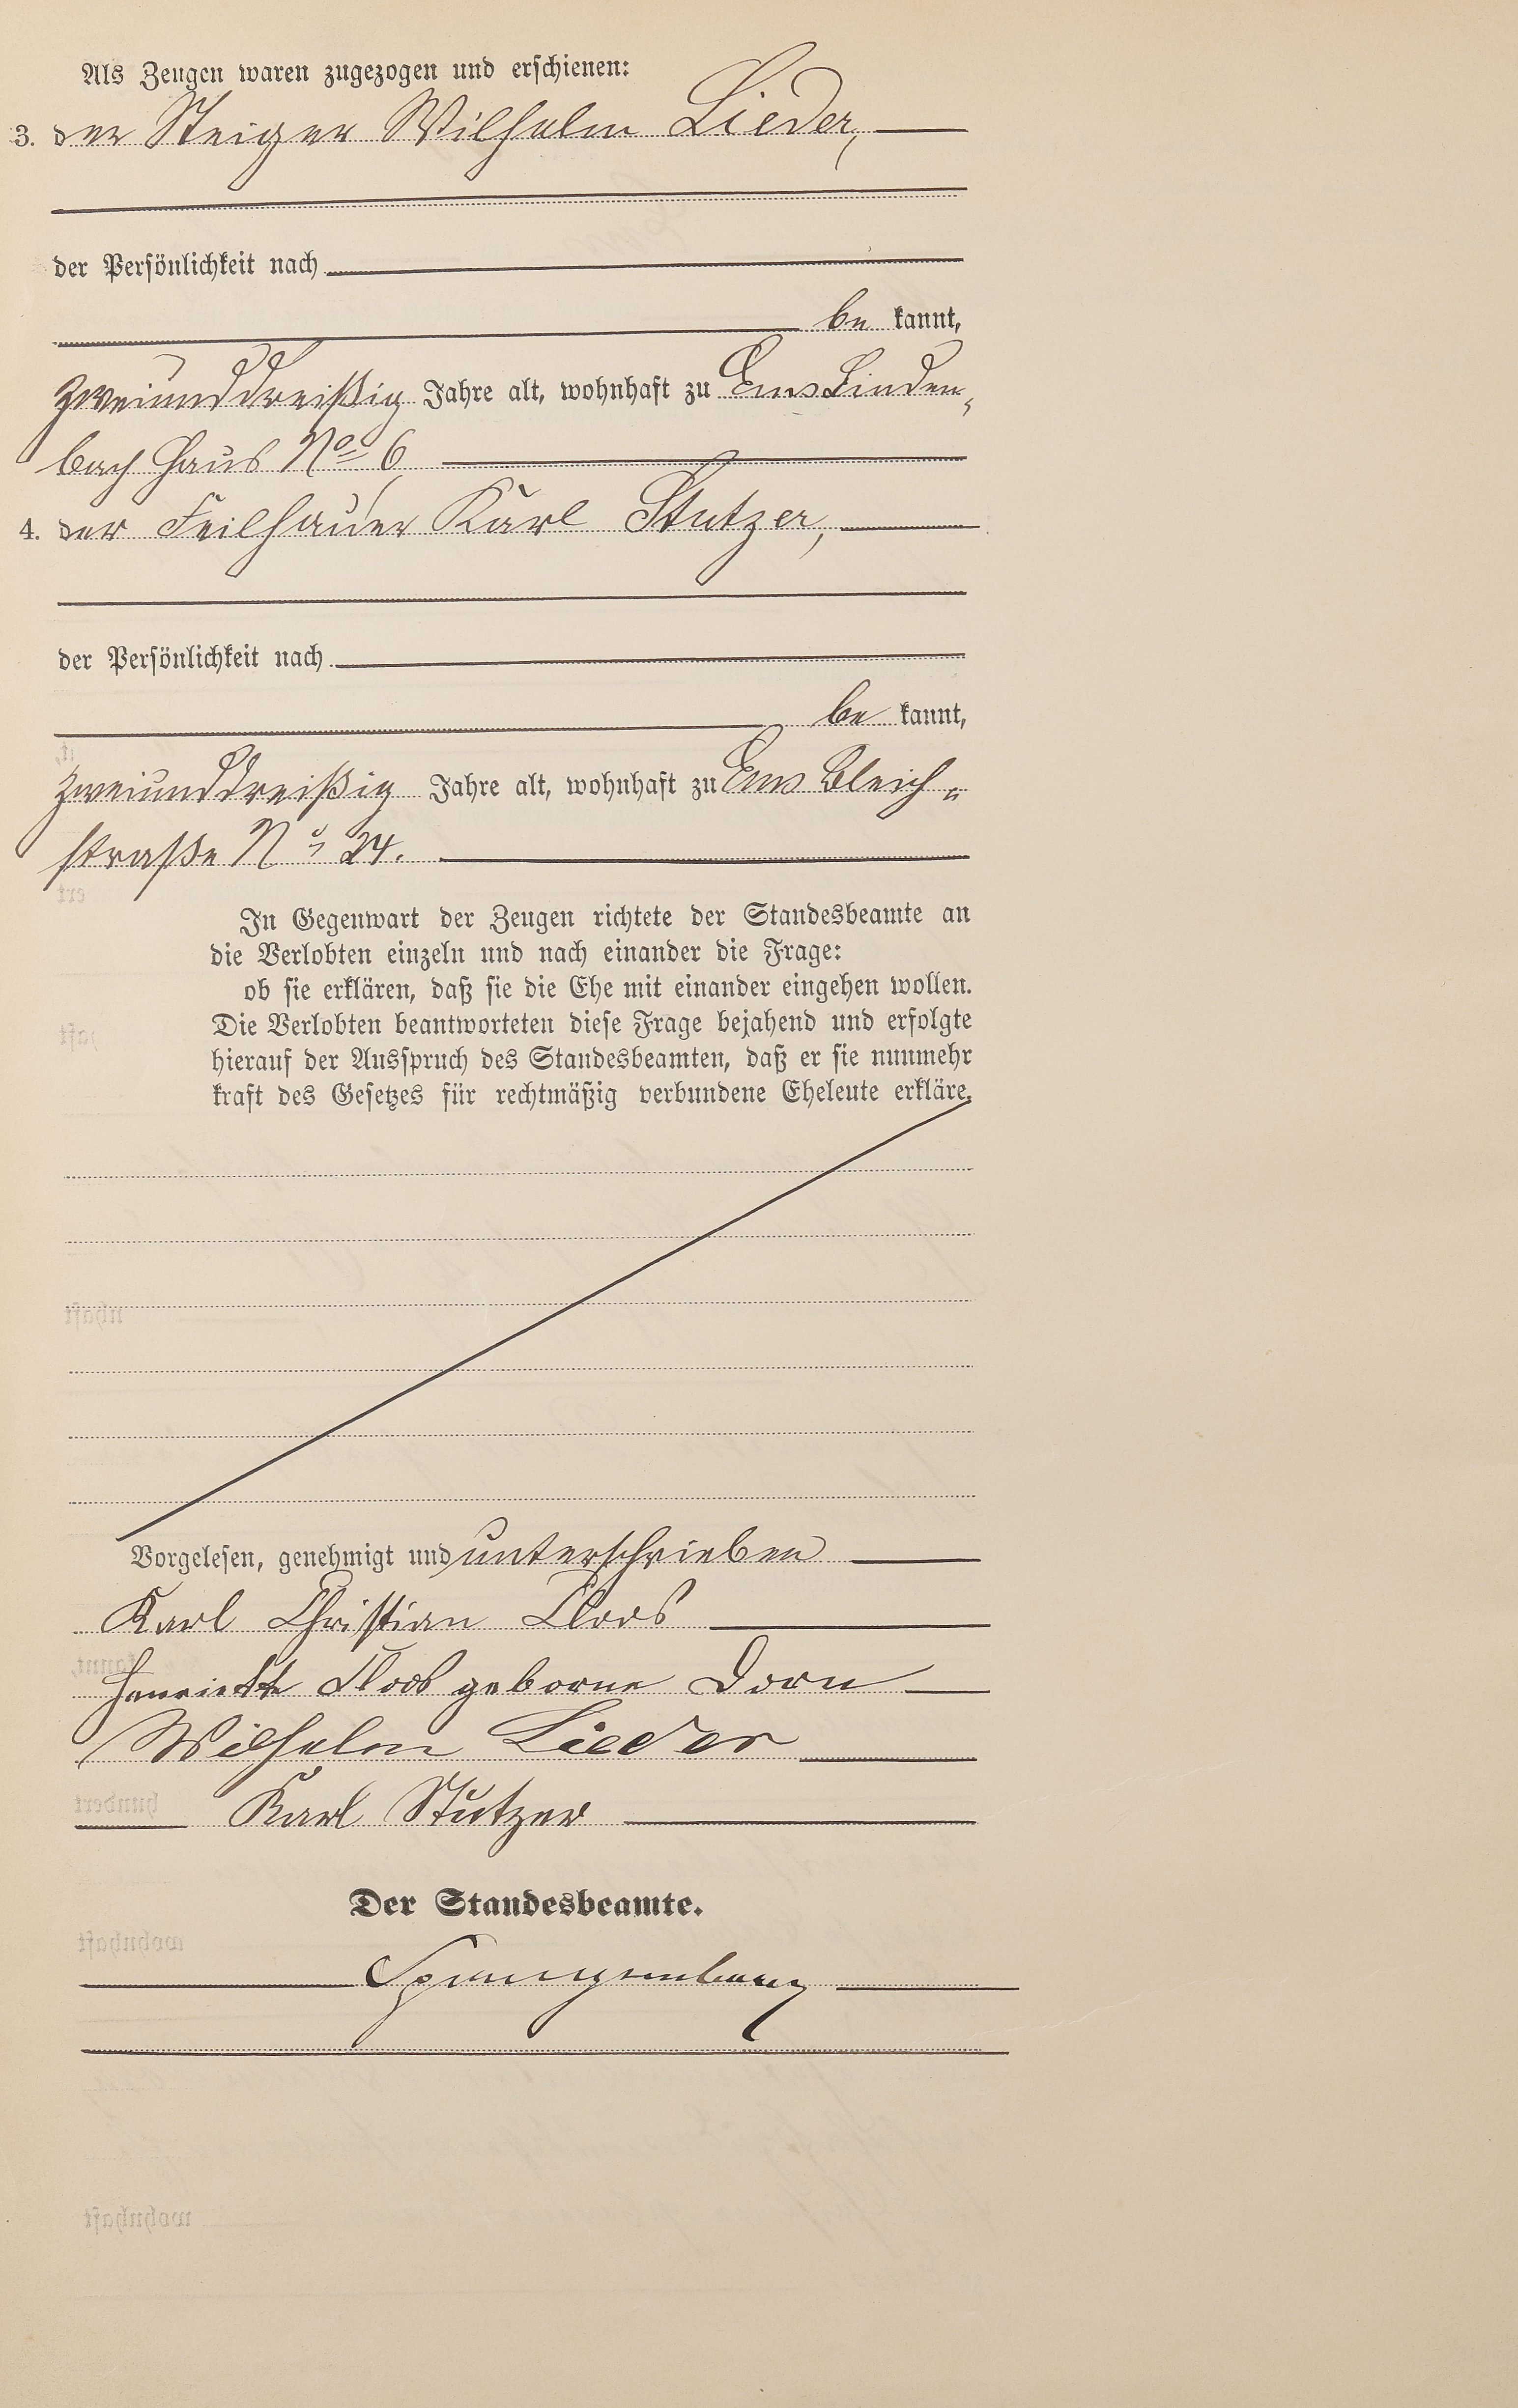 Als Zeugen waren zugezogen und erschienen:
3. der Steiger Wilhelm Lieder,
der Persönlichkeit nach
be kannt,
zweiunddreißig Jahre alt, wohnhaft zu Ems Linden-
bach Haus No 6
4. der Feilhauer Karl Stutzer,
der Persönlichkeit nach
be kannt,
zweiunddreißig Jahre alt, wohnhaft zu Ems Bleich-
straße No 24.
In Gegenwart der Zeugen richtete der Standesbeamte an
die Verlobten einzeln und nach einander die Frage:
ob sie erklären, daß sie die Ehe mit einander eingehen wollen.
Die Verlobten beantworteten diese Frage bejahend und erfolgte
hierauf der Ausspruch des Standesbeamten, daß er sie nunmehr
kraft des Gesetzes für rechtmäßig verbundene Eheleute erkläre.
Vorgelesen, genehmigt und unterschrieben
Karl Christian Cloos
Henriette Cloos geborne Dorn
Wilhelm Lieder
Karl Stutzer
Der Standesbeamte.
Spangenberg